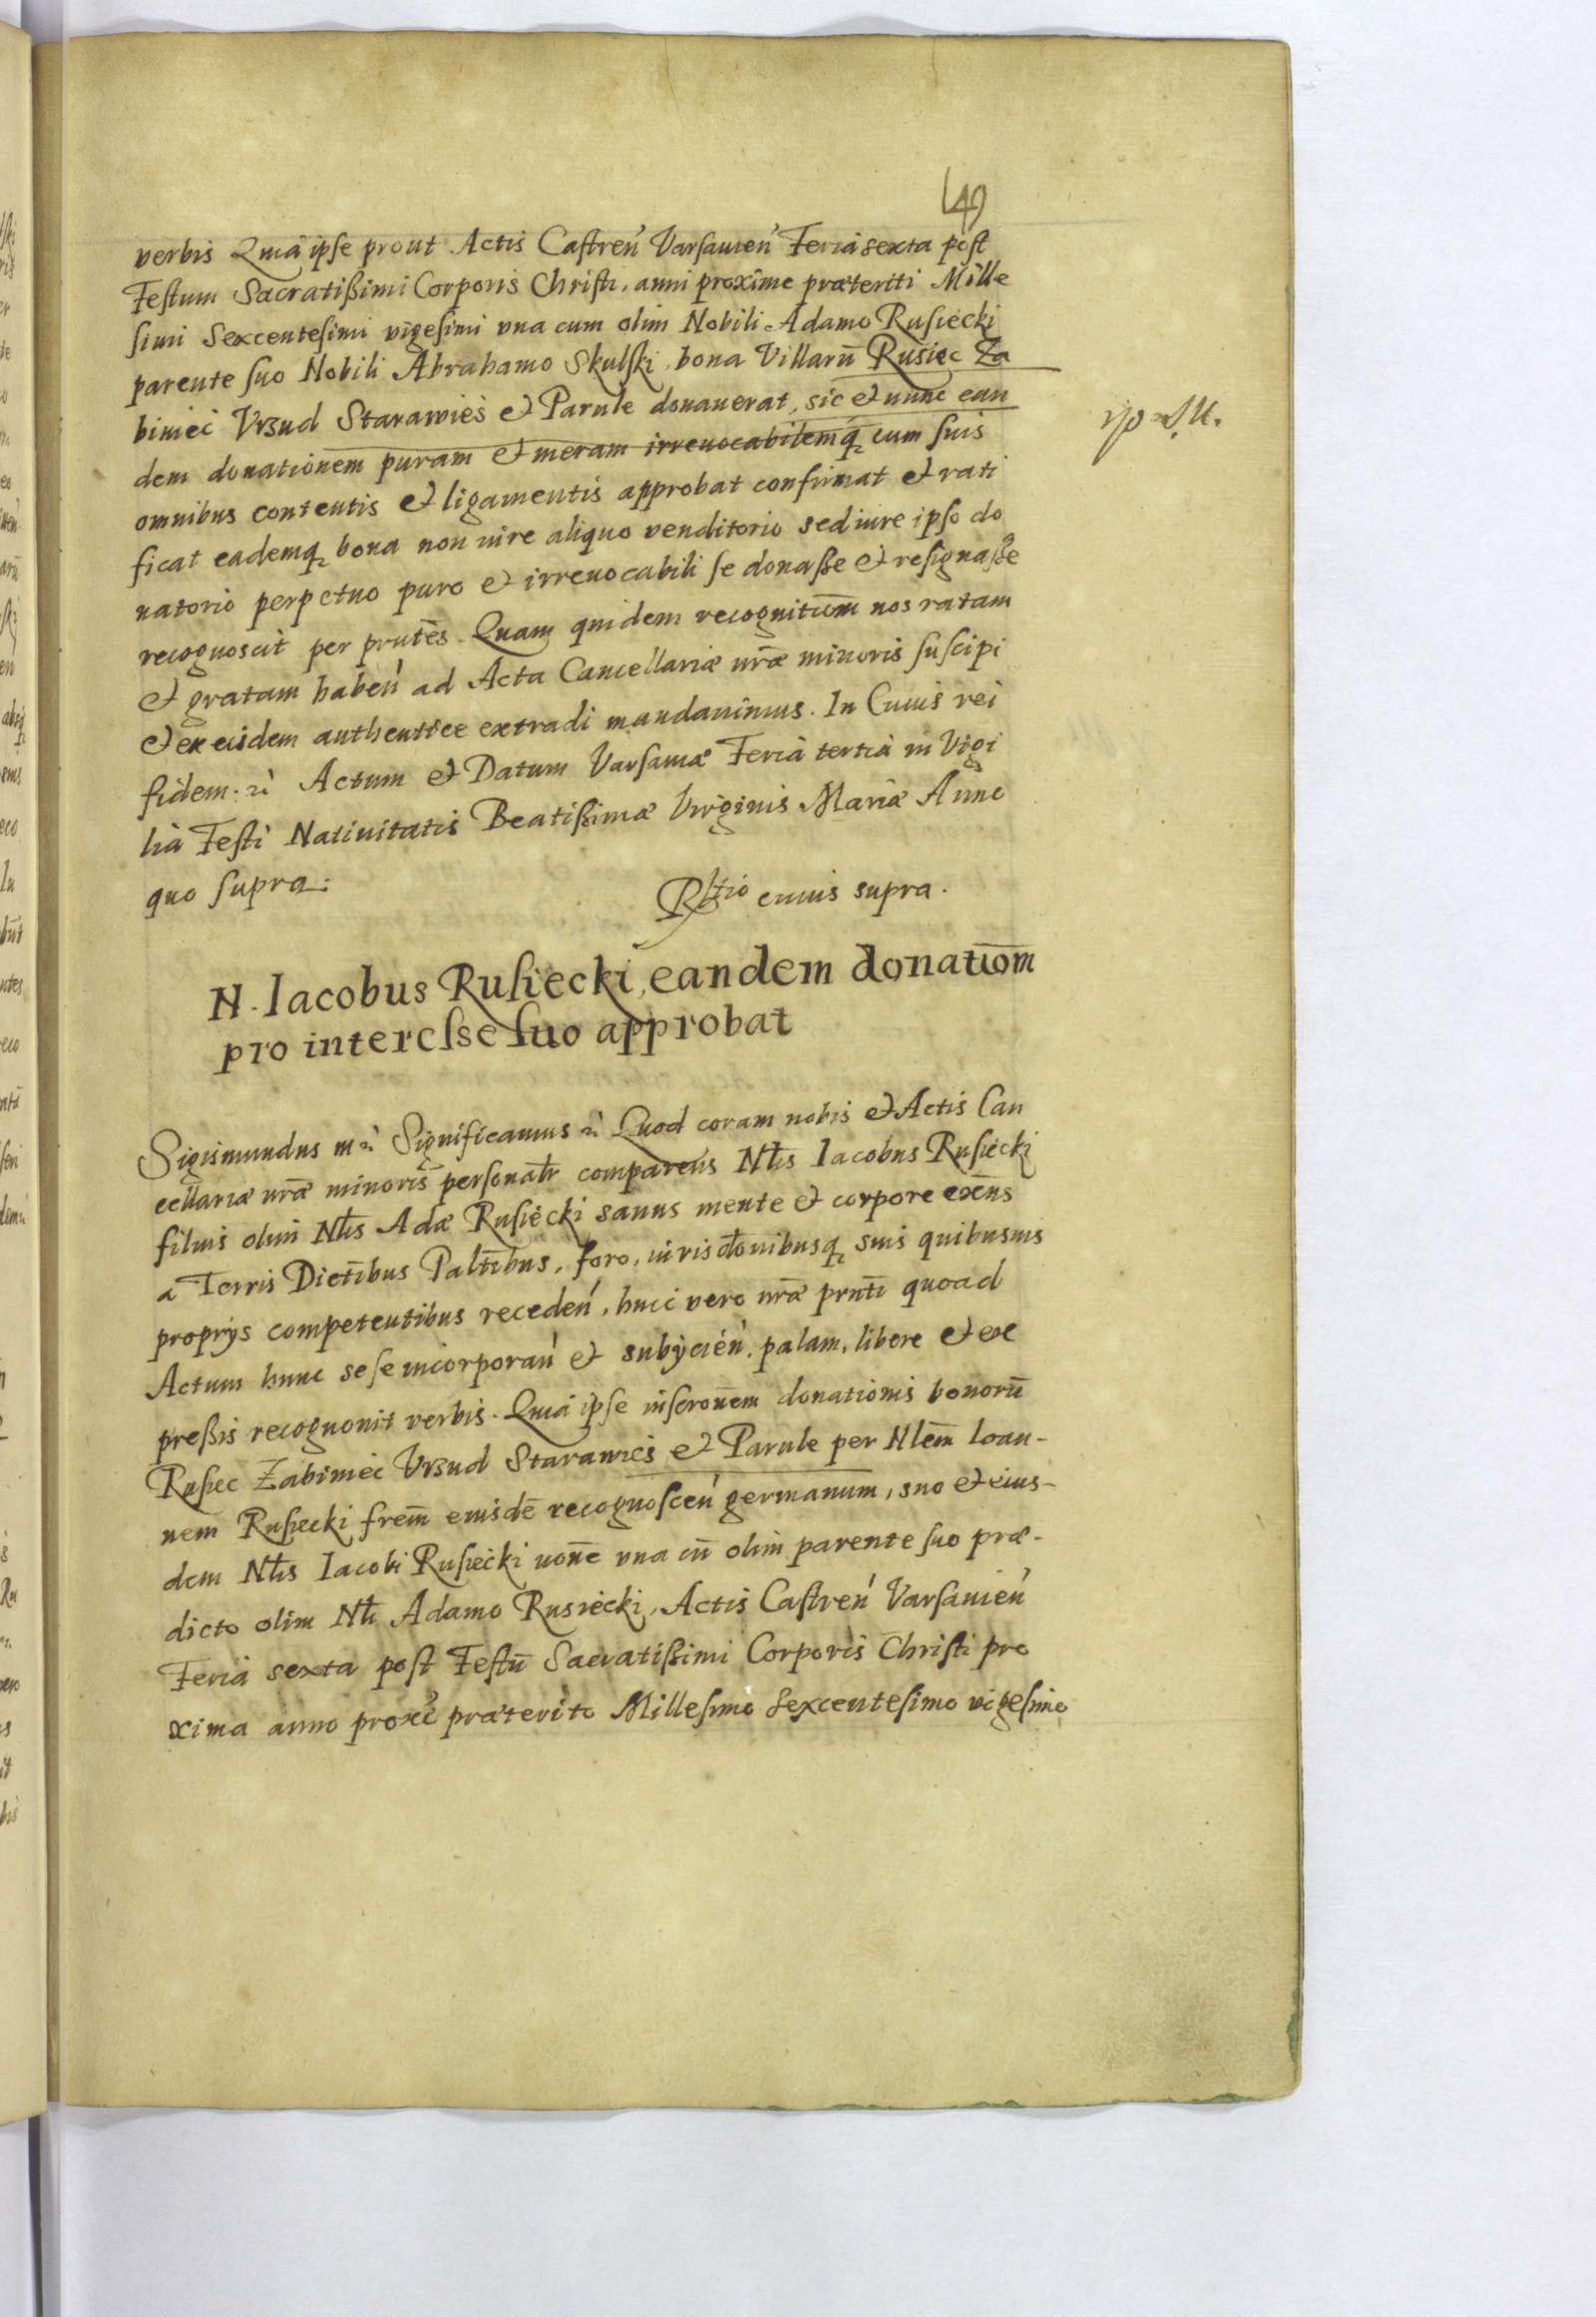 49
verbis Quia ipse prout Actis Castren̄ Varsauien̄ Feria sexta post
Festum Sacratißimi Corporis Christi, anni proxime præteriti Mille
simi Sexcentesimi vigesimi vna cum olim Nobili Adamo Rusiecki
parente suo Nobili Abrahamo Skulski, bona Villarū Rusiec Za
biniec Vrsud Starawies et Parule donauerat, sic et nunc ean
dem donationem puram et meram irreuocabilemq̨ cum suis
omnibus contentis et ligamentis approbat confirmat et rati
ficat eademq̨ bona non iure aliquo venditorio sed iure ipso do
natorio perpetuo puro et irreuocabili se donaße et resignaße
recognoscit per prntēs. Quam quidem recognitiōm nos ratam
et gratam haben̄ ad Acta Cancellariæ nr̄æ minoris suscipi
et ex eisdem authentice extradi mandauimus. In Cuius rei
fidem. Actum et Datum Varsauiæ Feria tertia in Vigi
lia Festi Natiuitatis Beatißimæ Virginis Mariæ Anno
quo supra.
Rltio cuius supra.
N. Iacobus Rusiecki, eandem donatiōm
pro interesse suo approbat
Sigismundus Significamus Quod coram nobis et Actis Can
cellariæ nr̄æ minoris personalr̄ comparens Nl̄is Iacobus Rusiecki
filius olim Nl̄is Adæ Rusiecki sanus mente et corpore exn̄s
a Terris Dictībus Paltībus, foro, iurisdōnibusq̨ suis quibusuis
proprijs competentibus receden̄, huic vero nr̄æ prn̄ti quoad
Actum hunc sese incorporan̄ et subijcien̄, palam, libere et ex
preßis recognouit verbis. Quia ipse inscrōnem donationis bonorū
Rusiec Zabiniec Vrsud Starawies et Parule per Nlem̄ Ioan-
nem Rusiecki frem̄ eiusdē recognoscen̄ germanum, suo et eius-
dem Nl̄is Iacobi Rusiecki noīe vna cū olim parente suo præ-
dicto olim Nl̄i Adamo Rusiecki, Actis Castren̄ Varsauien̄
Feria sexta post Festū Sacratißimi Corporis Christi pro
xima anno proxē præterito Millesimo Sexcentesimo vigesimo